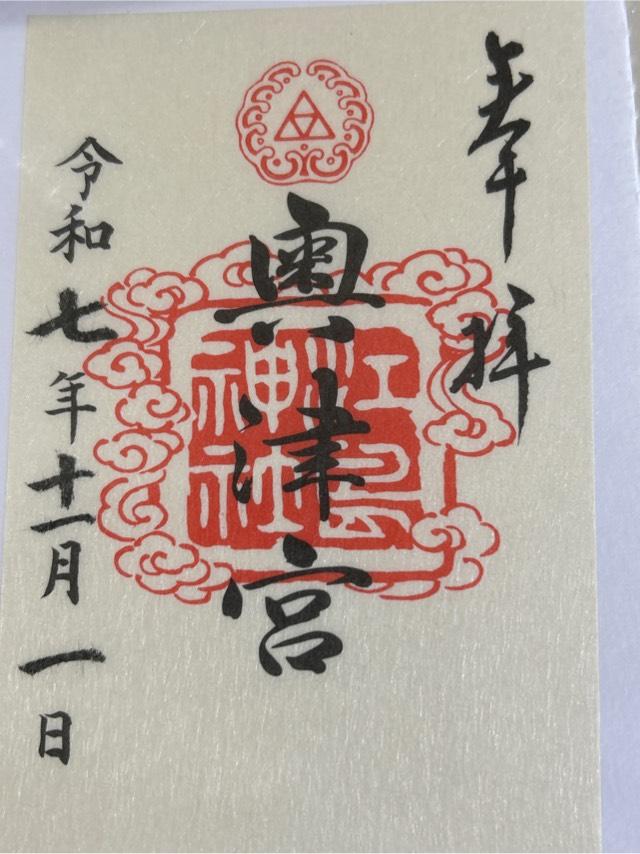 奉拝
奥津宮
江島
神社
令和七年十一月一日